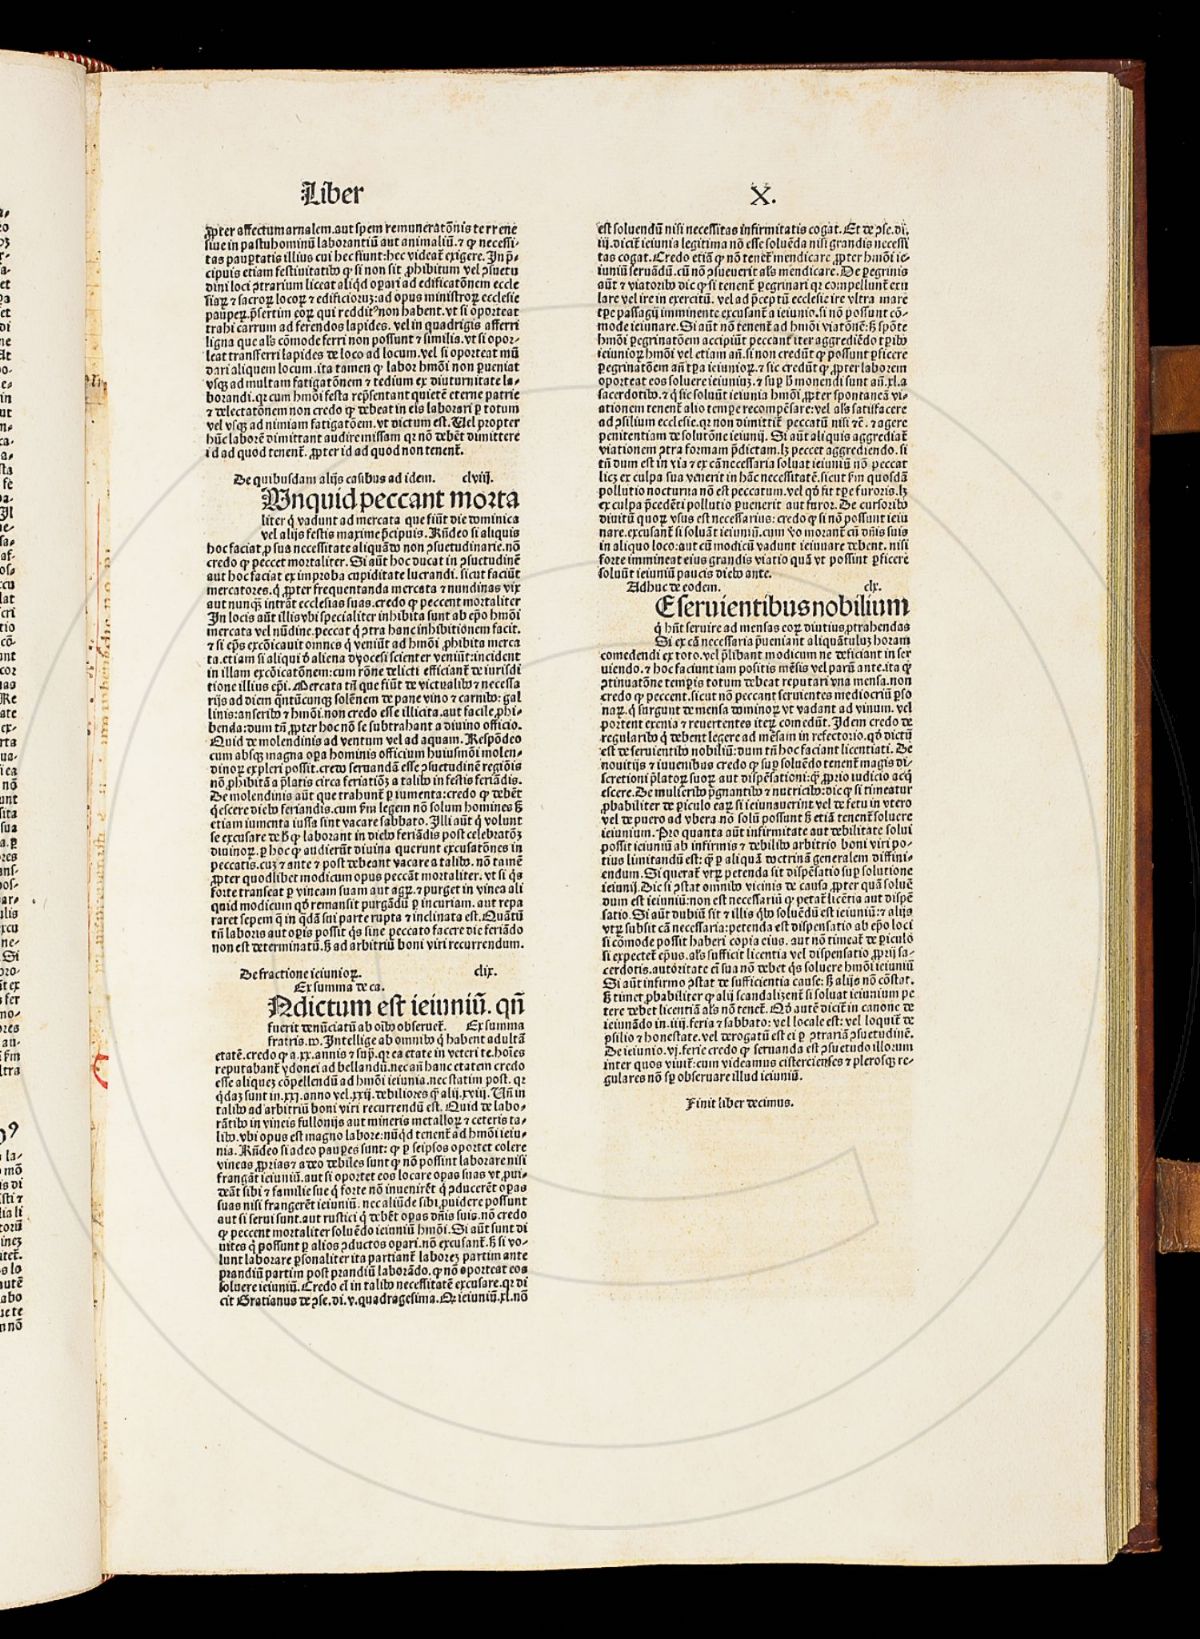 Liber X.
ꝓpter affectum arnalem. aut spem remuneratōnis terrene
siue in pastu hominū laborantiū aut animaliū. ⁊ ꝙ necessi-
tas paupertatis illius cui hec fiunt: hec videat̄ exigere. In p̄-
cipuis etiam festiuitatibꝰ ꝙ si non sit ꝓhibitum vel ↄsuetu
dini loci ↄtrarium liceat aliqd oꝑari ad edificatōnem eccle
siaꝝ ⁊ sacroꝝ locoꝝ ⁊ edificioruꝫ: ad opus ministroꝝ ecclesie
pauꝑeꝝ p̄sertim eoꝝ qui redditꝰ non habent. vt si oporteat
trahi carrum ad ferendos lapides. vel in quadrigis afferri
ligna que als cōmode ferri non possunt ⁊ similia. vt si opor-
leat transferri lapides de loco ad locum. vel si oporteat mū
dari aliquem locum. ita tamen ꝙ labor hmōi non ꝑueniat
vsqꝫ ad multam fatigatōnem ⁊ tedium ex diuturnitate la-
borandi. qꝛ cum hmōi festa rep̄sentant quietē eterne patrie
⁊ delectatōnem non credo ꝙ debeat in eis laborari ꝑ totum
vel vsqꝫ ad nimiam fatigatōem. vt dictum est. Uel propter
hūc laborē dimittant audire missam qꝛ nō debēt dimittere
id ad quod tenent̄. ꝓpter id ad quod non tenent̄.
De quibusdam alijs casibus ad idem. clviij.
Unquid peccant morta
liter q̇ vadunt ad mercata que fiūt die dominica
vel alijs festis maxime p̄cipuis. Rn̄deo si aliquis
hoc faciat ꝓ sua necessitate aliquādo non ↄsuetudinarie. nō
credo ꝙ peccet mortaliter. Si aūt hoc ducat in ↄsuetudinē
aut hoc faciat ex improba cupiditate lucrandi. sicut faciūt
mercatores. q̇ ꝓpter frequentanda mercata ⁊ nundinas vix
aut nunqꝫ intrāt ecclesias suas. credo ꝙ peccent mortaliter
In locis aūt illis vbi specialiter inhibita sunt ab ep̄o hmōi
mercata vel nūdine. peccat q̇ ↄtra hanc inhibitionem facit.
⁊ si ep̄s excōicauit omnes q̇ veniūt ad hmōi ꝓhibita merca
ta. etiam si aliqui d̓ aliena dyocesi scienter veniūt: incident
in illam excōicatōnem: cum rōne delicti efficiant̄ de iurisdi
tione illius ep̄i. Mercata tn̄ que fiūt de victualibꝰ ⁊ necessa
rijs ad diem qn̄tūcunqꝫ solēnem de pane vino ⁊ carnibꝰ: gal
linis: anseribꝰ ⁊ hmōi. non credo esse illicita. aut facile ꝓhi-
benda: dum tn̄ ꝓpter hoc nō se subtrahant a diuino officio.
Quid de molendinis ad ventum vel ad aquam. Respōdeo
cum absqꝫ magna oꝑa hominis officium huiusmōi molen-
dinoꝝ expleri possit. credo seruandā esse ↄsuetudinē regiōis
nō ꝓhibitā a p̄latis circa feriatiōꝫ a talibꝰ in festis feriādis.
De molendinis aūt que trahunt̄ ꝑ iumenta: credo ꝙ debēt
q̇escere diebꝰ feriandis. cum scd̄m legem nō solum homines sꝫ
etiam iumenta iussa sint vacare sabbato. Illi aūt q̇ volunt
se excusare de h̓ ꝙ laborant in diebꝰ feriādis post celebratōꝫ
diuinoꝝ. ꝑ hoc ꝙ audierūt diuina querunt excusatōnes in
peccatis. cuꝫ ⁊ ante ⁊ post debeant vacare a talibꝰ. nō tamē
ꝓpter quodlibet modicum opus peccāt mortaliter. vt si q̇s
forte transeat ꝑ vineam suam aut agꝝ. ⁊ purget in vinea ali
quid modicum qd̓ remansit purgādū ꝑ incuriam. aut repa
raret sepem q̄ in q̇dā sui parte rupta ⁊ inclinata est. Quātū
tn̄ laboris aut oꝑis possit q̇s sine peccato facere die feriādo
non est determinatū. sꝫ ad arbitriū boni viri recurrendum.
De fractione ieiunioꝝ. clix.
Ex summa de ca.
Ndictum est ieiuniū. qn̄
fuerit denūciatū ab oībꝰ obseruet̄. Ex summa
fratris. w. Intellige ab omnibꝰ q̇ habent adultā
etatē. credo ꝙ a. xx. annis ⁊ supͣ. qꝛ ea etate in veteri te. hoīes
reputabant̄ ydonei ad bellandū. nec an̄ hanc etatem credo
esse aliqueꝫ cōpellendū ad hmōi ieiunia. nec statim post. qꝛ
q̇daꝫ sunt in. xxj. anno vel. xxij. debiliores ꝙ̄ alij. xviij. Un̄ in
talibꝰ ad arbitriū boni viri recurrendū est. Quid de labo-
rātibꝰ in vineis fullonijs aut mineris metalloꝝ ⁊ ceteris ta-
libꝰ. vbi opus est magno labore: nūq̇d tenent̄ ad hmōi ieiu-
nia. Rn̄deo si adeo pauꝑes sunt: ꝙ ꝑ seipsos oportet colere
vineas ꝓprias ⁊ adeo debiles sunt ꝙ nō possint laborare nisi
frangāt ieiuniū. aut si oportet eos locare opas suas vt ꝓui-
deāt sibi ⁊ familie sue q̇ forte nō inuenirēt q̇ ↄducerēt opas
suas nisi frangerēt ieiuniū. nec aliūde sibi ꝓuidere possunt
aut si serui sunt. aut rustici q̇ debēt opas dn̄is suis. nō credo
ꝙ peccent mortaliter soluēdo ieiuniū hmōi. Si aūt sunt di
uites q̇ possunt ꝑ alios ↄductos oꝑari. nō excusant̄. sꝫ si vo-
lunt laborare ꝑsonaliter ita partiant̄ laboreꝫ partim ante
prandiū partim post prandiū laborādo. ꝙ nō oporteat eos
soluere ieiuniū. Credo em̄ in talibꝰ necessitatē excusare. qꝛ di
cit Gratianus de ↄse. di. v. quadragesima. Qꝛ ieiuniū. xl. nō
est soluendū nisi necessitas infirmitatis cogat. Et de ↄse. di.
iij. dicit̄ ieiunia legitima nō esse soluēda nisi grandis necessi
tas cogat. Credo etiā ꝙ nō tenet̄ mendicare ꝓpter hmōi ie-
iuniū seruādū. cū nō ↄsueuerit als mendicare. De ꝑegrinis
aūt ⁊ viatoribꝰ dic ꝙ si tenent̄ ꝑegrinari qꝛ compellunt̄ exu
lare vel ire in exercitū. vel ad p̄ceptū ecclesie ire vltra mare
tꝑe passagij imminente excusant̄ a ieiunio. si nō possunt cō-
mode ieiunare. Si aūt nō tenent̄ ad hmōi viatōnē: sꝫ spōte
hmōi ꝑegrinatōem accipiūt peccant̄ iter aggrediēdo tꝑibꝰ
ieiunioꝝ hmōi vel etiam an̄. si non credūt ꝙ possunt ꝑficere
ꝑegrinatōem an̄ tꝑa ieiunioꝝ. ⁊ sic credūt ꝙ ꝓpter laborem
oporteat eos soluere ieiuniuꝫ. ⁊ suꝑ h̓ monendi sunt an̄. xl. a
sacerdotibꝰ. ⁊ q̇ sic soluūt ieiunia hmōi ꝓpter spontaneā vi-
ationem tenent̄ alio tempe recompēsare: vel als satisfacere
ad ↄsilium ecclesie. qꝛ non dimittit̄ peccatū nisi ⁊c̄. ⁊ agere
penitentiam de solutōne ieiunij. Si aūt aliquis aggrediat̄
viationem ↄtra formam p̄dictam. lꝫ peccet aggrediendo. si
tn̄ dum est in via ⁊ ex cā necessaria soluat ieiuniū nō peccat
licꝫ ex culpa sua venerit in hāc necessitatē. sicut scd̄m quosdā
pollutio nocturna nō est peccatum. vel qd̓ sit tꝑe furoris. lꝫ
ex culpa p̄cedēti pollutio ꝓuenerit aut furor. De cursoribꝰ
diuitū quoꝝ vsus est necessarius: credo ꝙ si nō possunt ieiu
nare. excusant̄ si soluāt ieiuniū. cum vo morant̄ cū dn̄is suis
in aliquo loco: aut cū modicū vadunt ieiunare debent. nisi
forte immineat eius grandis viatio quā vt possint ꝑficere
soluūt ieiuniū paucis diebꝰ ante.
Adhuc de eodem. clx.
E seruientibus nobilium
q̇ hn̄t seruire ad mensas eoꝝ diutius ꝓtrahendas
Si ex cā necessaria p̄ueniant aliquātuluꝫ horam
comedendi ex toto. vel p̄libant modicum ne deficiant in ser
uiendo. ⁊ hoc faciunt iam positis mēsis vel parū ante. ita ꝙ
ↄtinuatōne tempis totum debeat reputari vna mensa. non
credo ꝙ peccent. sicut nō peccant seruientes mediocriū ꝑso
naꝝ. q̇ surgunt de mensa dominoꝝ vt vadant ad vinum. vel
portent exenia ⁊ reuertentes iteꝝ comedūt. Idem credo de
regularibꝰ q̇ debent legere ad mēsam in refectorio. qd̓ dictū
est de seruientibꝰ nobiliū: dum tn̄ hoc faciant licentiati. De
nouitijs ⁊ iuuenibus credo ꝙ suꝑ soluēdo tenent̄ magis di-
scretioni p̄latoꝝ suoꝝ aut dispēsationi: ꝙ̄ ꝓprio iudicio acq̇
escere. De mulieribꝰ p̄gnantibꝰ ⁊ nutricibꝰ: dic ꝙ si timeatur
ꝓbabiliter de ꝑiculo eaꝝ si ieiunauerint vel de fetu in vtero
vel de puero ad vbera nō solū possunt sꝫ etiā tenent̄ soluere
ieiunium. Pro quanta aūt infirmitate aut debilitate solui
possit ieiuniū ab infirmis ⁊ debilibꝰ arbitrio boni viri po-
tius limitandū est: ꝙ̄ ꝑ aliquā doctrinā generalem diffini-
endum. Si querat̄ vtꝝ petenda sit dispēsatio suꝑ solutione
ieiunij. Dic si ↄstat omnibꝰ vicinis de causa ꝓpter quā soluē
dum est ieiuniū: non est necessariū ꝙ petat̄ licētia aut dispē
satio. Si aūt dubiū sit ⁊ illis q̇bꝰ soluēdū est ieiuniū: ⁊ alijs
vtꝝ subsit cā necessaria: petenda est dispensatio ab ep̄o loci
si cōmode possit haberi copia eius. aut nō timeat̄ de ꝑiculo
si expectet̄ ep̄us. als sufficit licentia vel dispensatio ꝓprij sa-
cerdotis. autoritate em̄ sua nō debet q̇s soluere hmōi ieiuniū
Si aūt infirmo ↄstat de sufficientia cause: sꝫ alijs nō cōstat.
sꝫ timet ꝓbabiliter ꝙ alij scandalizent̄ si soluat ieiunium pe
tere debet licentiā als nō tenet̄. Qd̓ autē dicit̄ in canone de
ieiunādo in. iiij. feria ⁊ sabbato: vel locale est: vel loquit̄ de
ↄsilio ⁊ honestate. vel derogatū est ei ꝑ ↄtrariā ↄsuetudinē.
De ieiunio. vj. ferie credo ꝙ seruanda est ↄsuetudo illorum
inter quos viuit̄: cum videamus cistercienses ⁊ plerosqꝫ re-
gulares nō sꝑ obseruare illud ieiuniū.
Finit liber decimus.